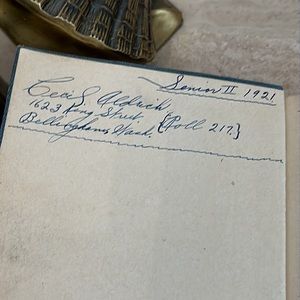 Senior II 1921
Cecil Aldrich
1623 King Street
Bellingham, Wash. {Roll 217.}